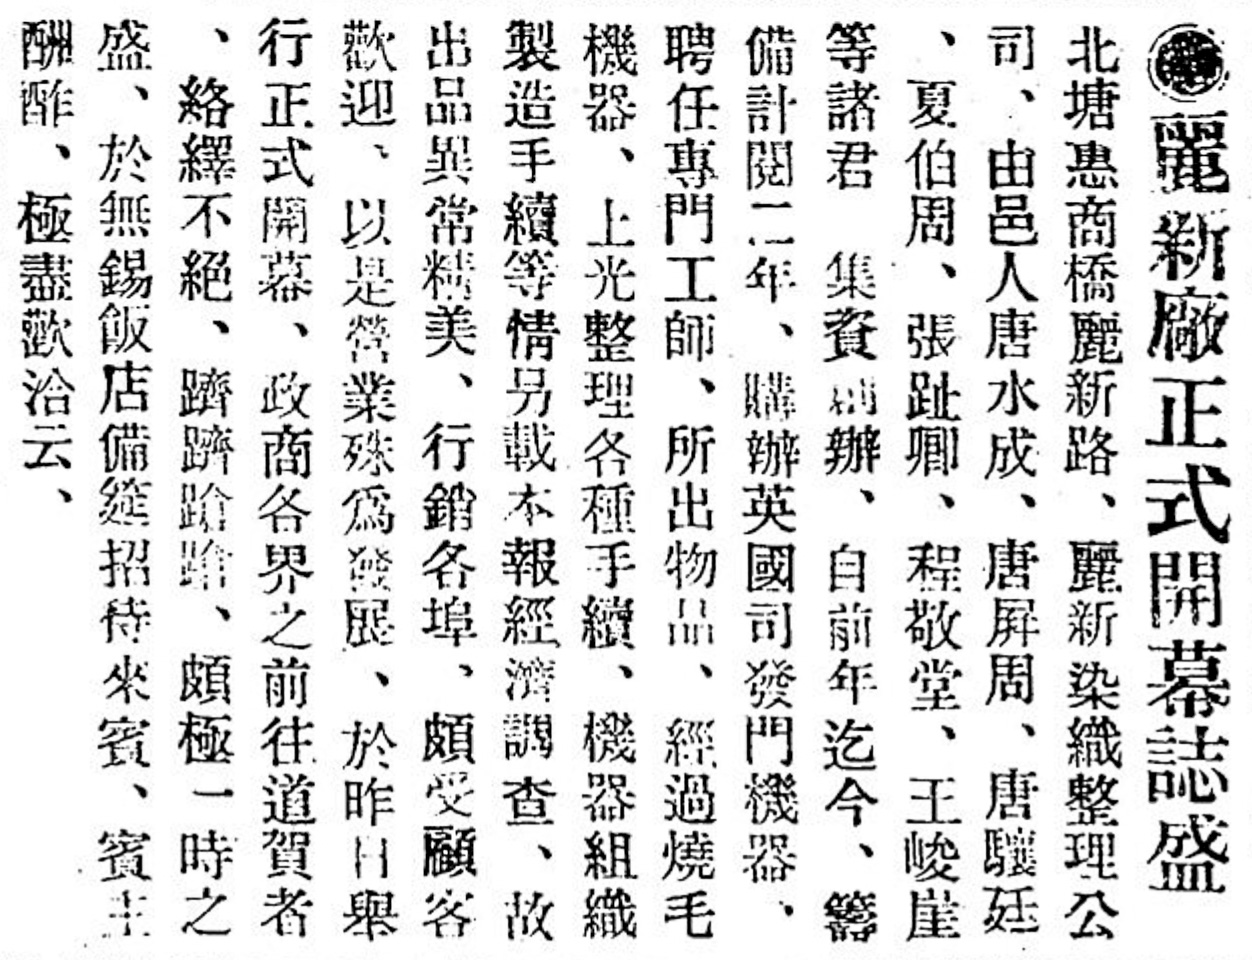 ◉麗新廠正式開幕誌盛
北塘惠商橋麗新路、麗新染織整理公
司、由邑人唐水成、唐屏周、唐驤廷
、夏伯周、張趾卿、程敬堂、王峻崖
等諸君　集資創辦、自前年迄今、籌
備計閱二年、購辦英國司發門機器、
聘任專門工師、所出物品、經過燒毛
機器、上光整理各種手續、機器組織
製造手續等情另載本報經濟調查、故
出品異常精美、行銷各埠、頗受顧客
歡迎、以是營業殊爲發展、於昨日舉
行正式開幕、政商各界之前往道賀者
、絡繹不絕、躋躋蹌蹌、頗極一時之
盛、於無錫飯店備筵招待來賓、賓主
酬酢、極盡歡洽云、